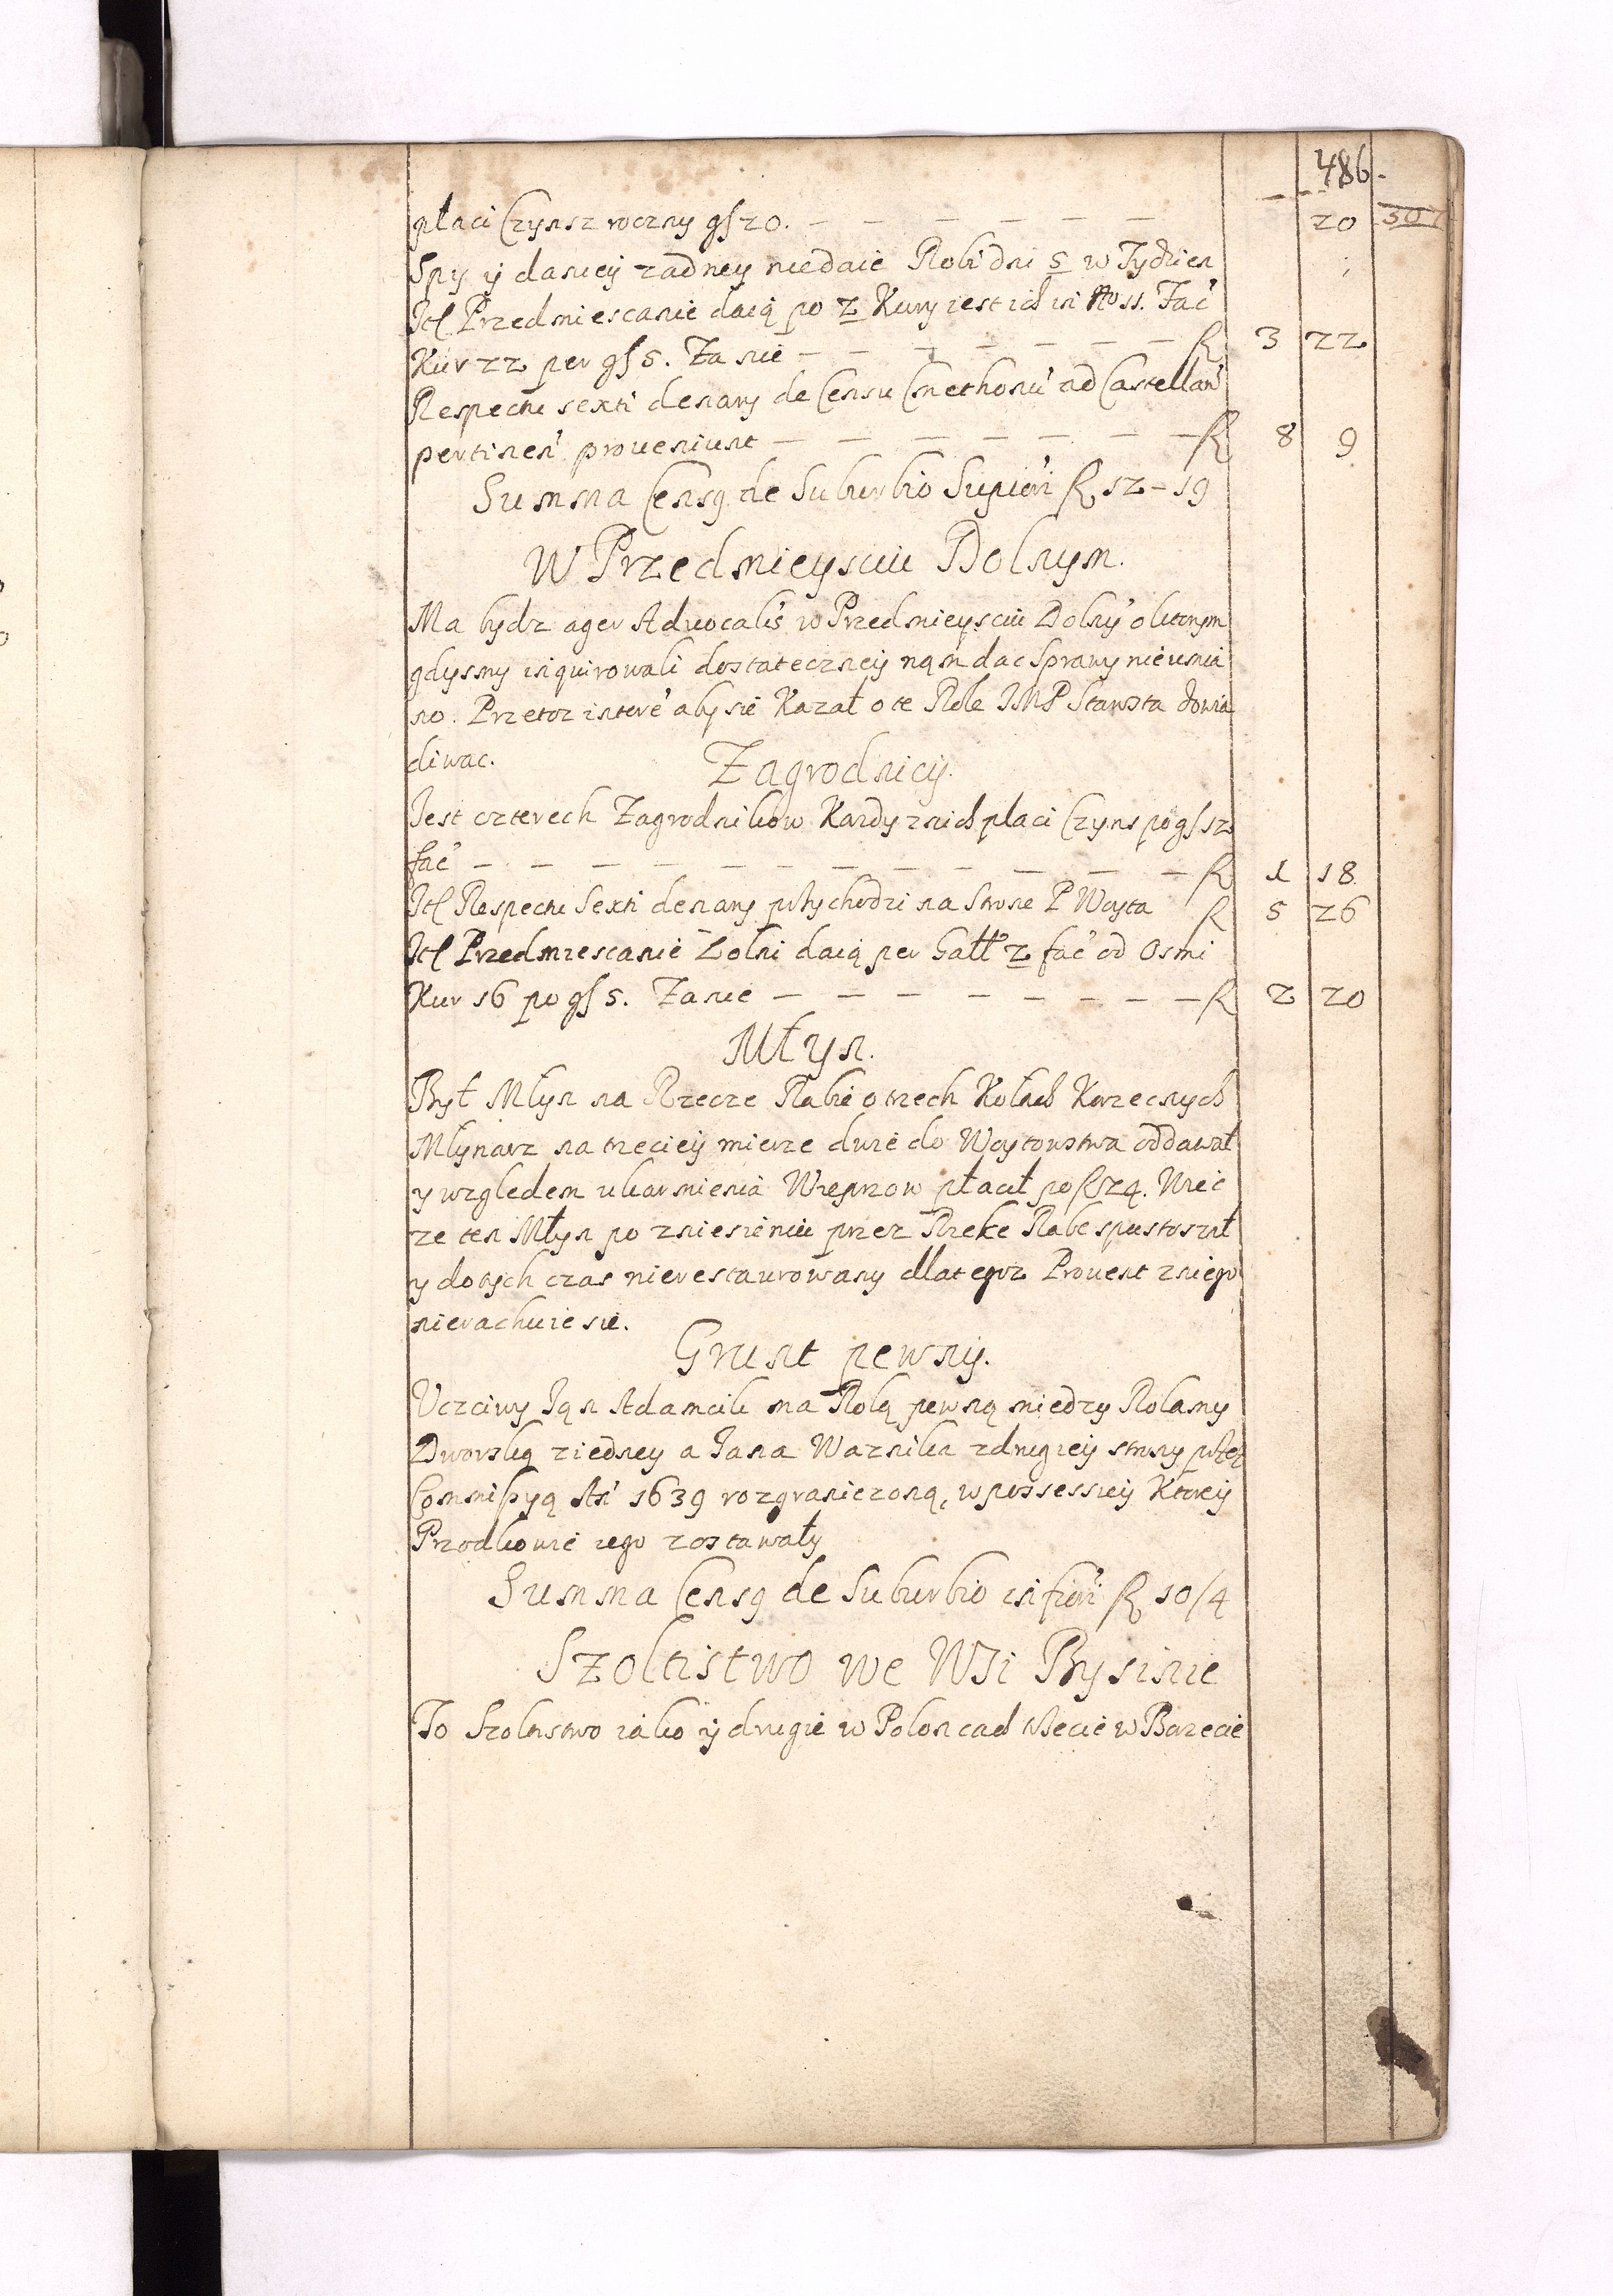 486.
płaci Czynsz roczny gſ 20. — — — — — — 20
Spy ÿ daniey zadney niedaie Robi dni 5 w Tydzien
Itl Przedmiescanie daią po 2 Kury iest ich in Nro 11. Fac'
Kur 22 per gſ 5. Za nie — — — — — — — R 3 22
Respectu sexti denary de Censu Cmethonu' ad Castellan'
pertinen' proueniunt — — — — — — — R 8 9
Summa Censg de Suburbio Superi'ori R 12 – 19
W Przedmieysciu Dolnym.
Ma bydz ager Aduocalis w Przedmieysciu Dolny' o ktorym
gdysmy inquirowali dostateczneÿ nąm dac Sprawy nieumia
no. Przetoz intere' aby sie Kazał o te Role IMP Starosta dowia
diwac.
Zagrodnicÿ.
Iest czterech Zagrodnikow Kazdy znich placi Czyns po gſ 12
fac' — — — — — — — — — — — R 1 18
Itl Respectu Sexti denary przychodzi na Strone P Woyta R 5 26
Itl Przedmiescanie Dolni daią per Gall' 2 fac' od Osmi
Kur 16 po gſ 5. Zanie — — — — — — — R 2 20
Młyn.
Był Młyn na Rzecze Rabie o trzech Kołach Korzecnych
Młynarz na trzecieÿ mierze dwie do Woytowstwa oddawał
y wzgledem ukarmienia Wieprzow płacił po R 24. Wiec
ze ten Młyn po zniesieniu przez Rzeke Rabe spustoszał
y dotych czas nierestaurowany dlategoz Prouent zniego
nierachuie sie.
Grunt pewnÿ.
Vczciwy Ian Adamcik ma Rolą pewną miedzy Rolamy
Dworską ziedney a Iana Waznika zdrugieÿ strony przez
Commissyą An' 1639 rozgraniczoną, w possessieÿ Ktoreÿ
Przodkowie iego zostawały
Summa Censg de Suburbio inferi'ori R 10/4
Szoltistwo we WSi Bysinie
To Szoltistwo iako ÿ drugie w Polon cad Mecie w Barecie